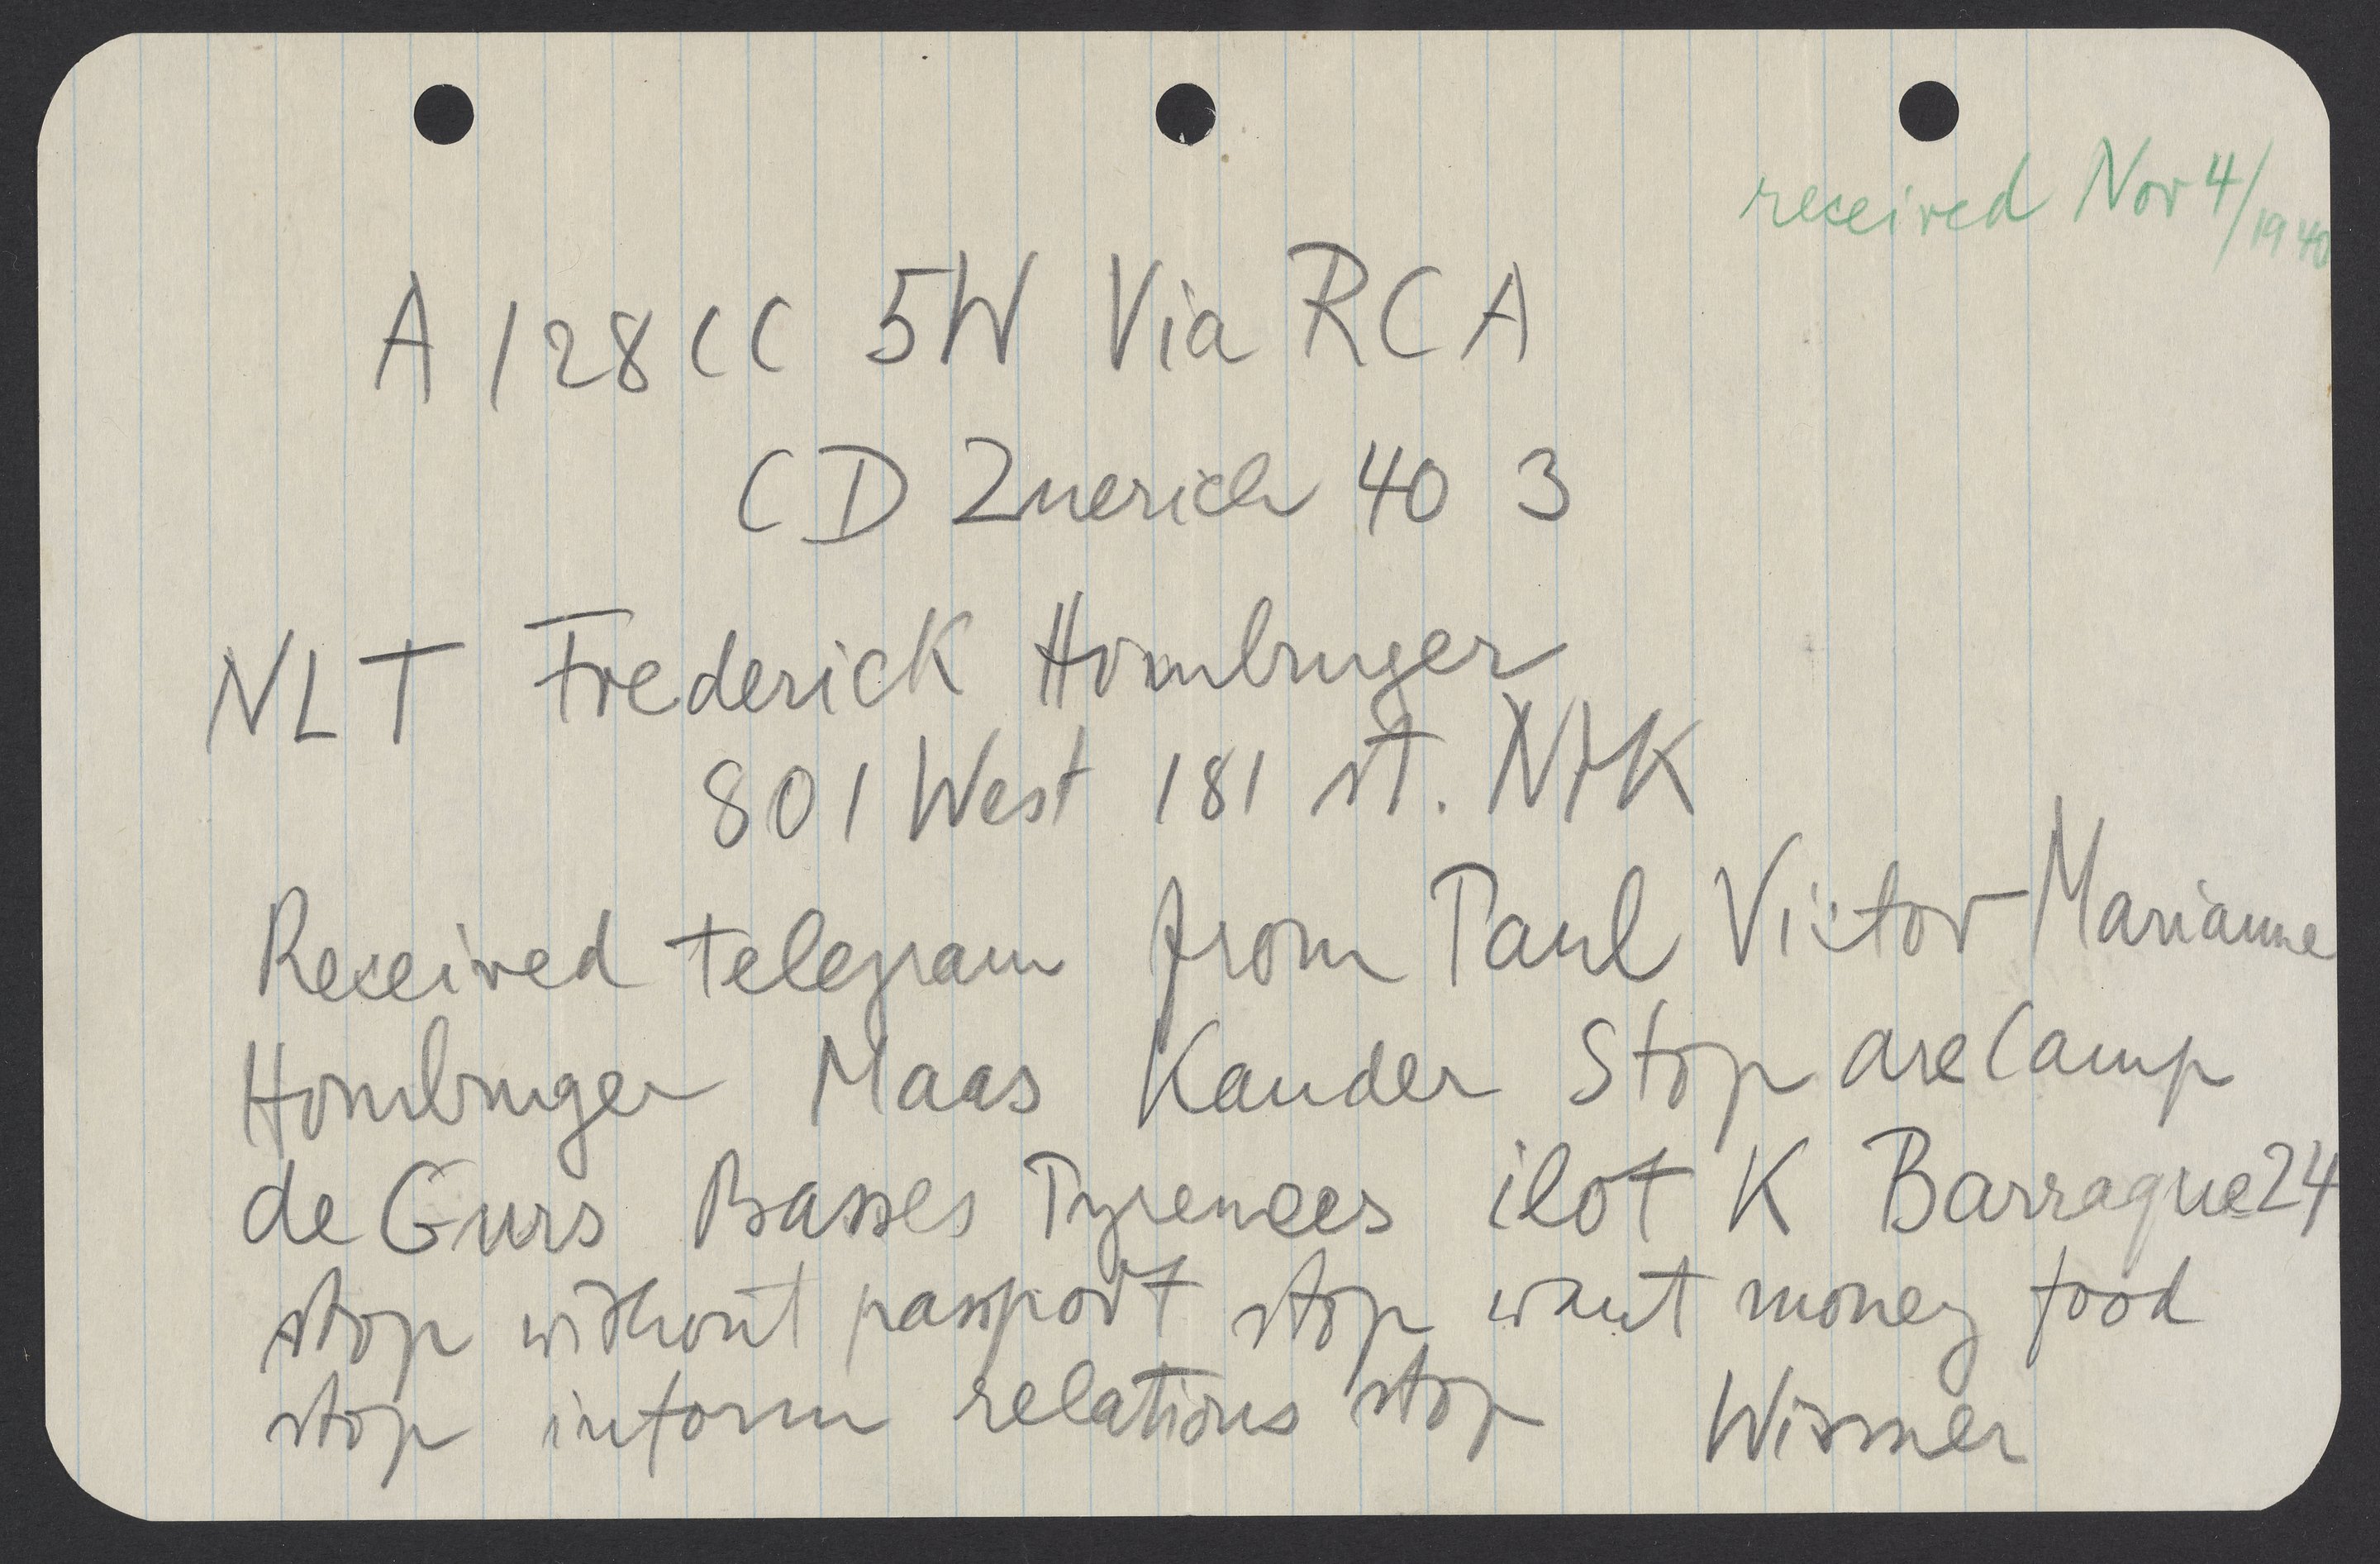 received Nov 4/1940
A 128 CC 5W Via RCA
CD Zuerich 40 3
NLT Frederick Homburger
801 West 181 st. NYK
Received telegram from Paul Victor Marianne
Homburger Maas Kander Stop are Camp
de Gurs Basses Pyrenees ilot K Barraque 24
stop without passport stop want money food
stop inform relations stop Wismer